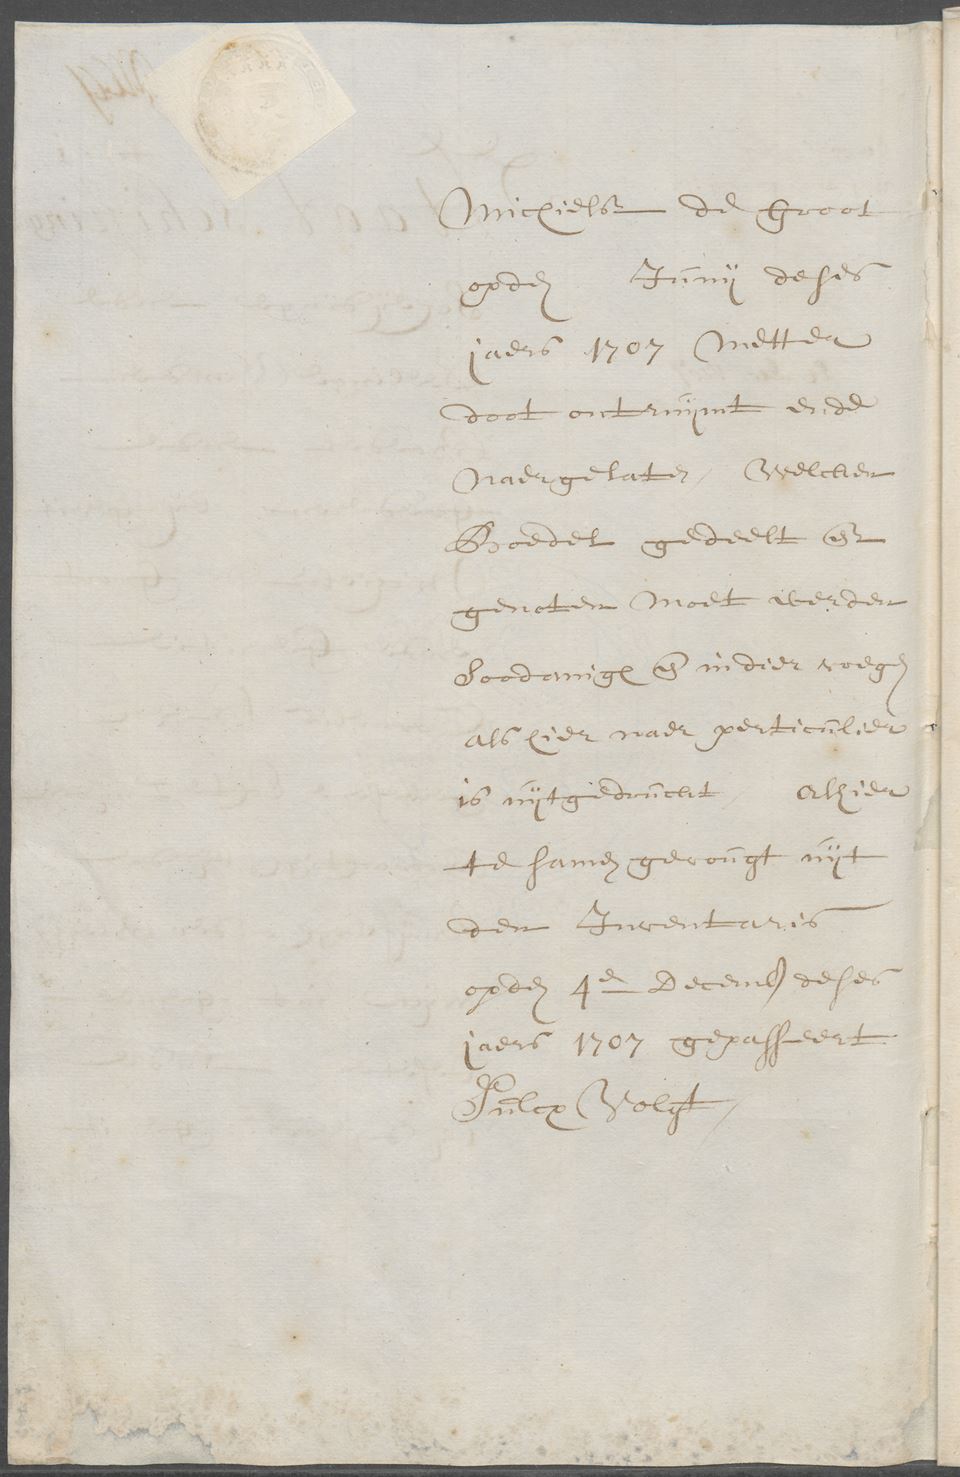 Michielsz de Groot
opden Junij deses
jaers 1707 metter
doot ontruijmt ende
naergelaten, Welcken
Boedel gedeelt en
genoten moet werden
Soodanigh en indier voegen
als hier naer perticulier
is uijtgedruckt, Alhier
te samen gevougt uijt
den Inventaris
opden 4e Decemb deses
jaers 1707 gepasseert
Sulcx Volgt,